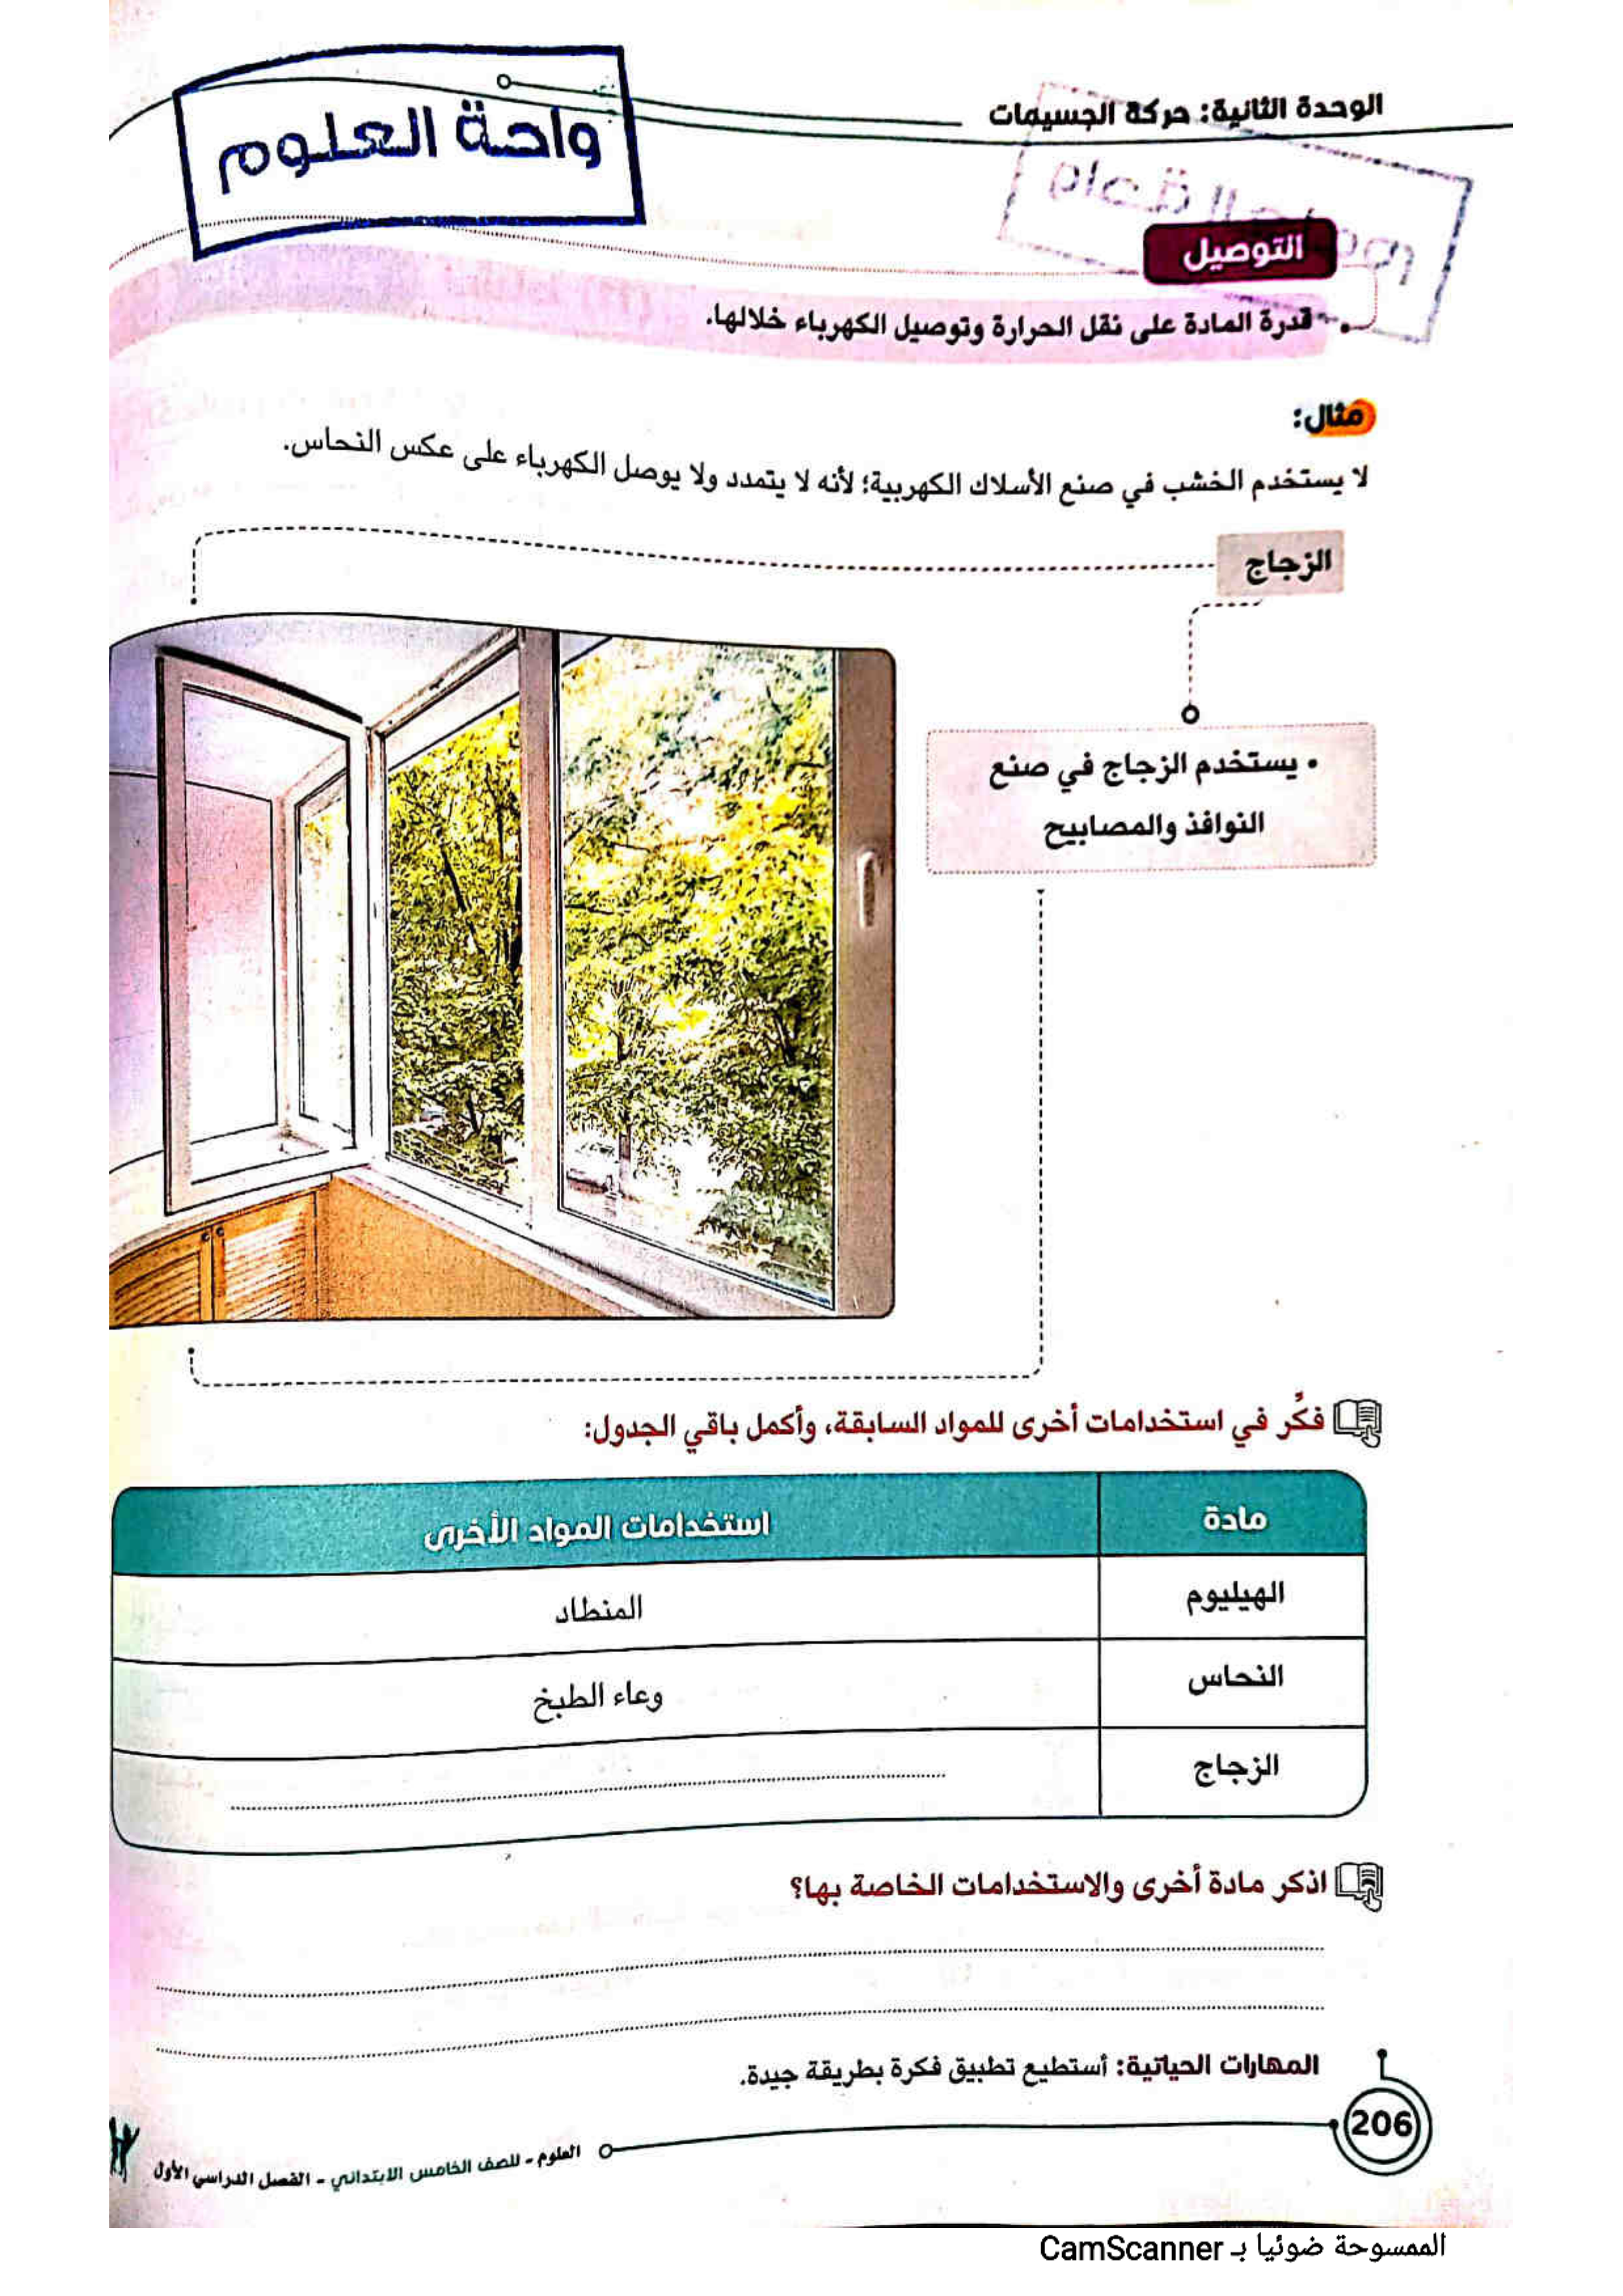 الوحدة الثانية: حركة الجسيمات
واحة العلوم
التوصيل
• قدرة المادة على نقل الحرارة وتوصيل الكهرباء خلالها.
مثال:
لا يستخدم الخشب في صنع الأسلاك الكهربية؛ لأنه لا يتمدد ولا يوصل الكهرباء على عكس النحاس.
الزجاج
• يستخدم الزجاج في صنع
النوافذ والمصابيح
فكِّر في استخدامات أخرى للمواد السابقة، وأكمل باقي الجدول:
مادة استخدامات المواد الأخرى
الهيليوم المنطاد
النحاس وعاء الطبخ
الزجاج
اذكر مادة أخرى والاستخدامات الخاصة بها؟
المهارات الحياتية: أستطيع تطبيق فكرة بطريقة جيدة.
206
العلوم - للصف الخامس الابتدائي - الفصل الدراسي الأول
الممسوحة ضوئيا بـ CamScanner